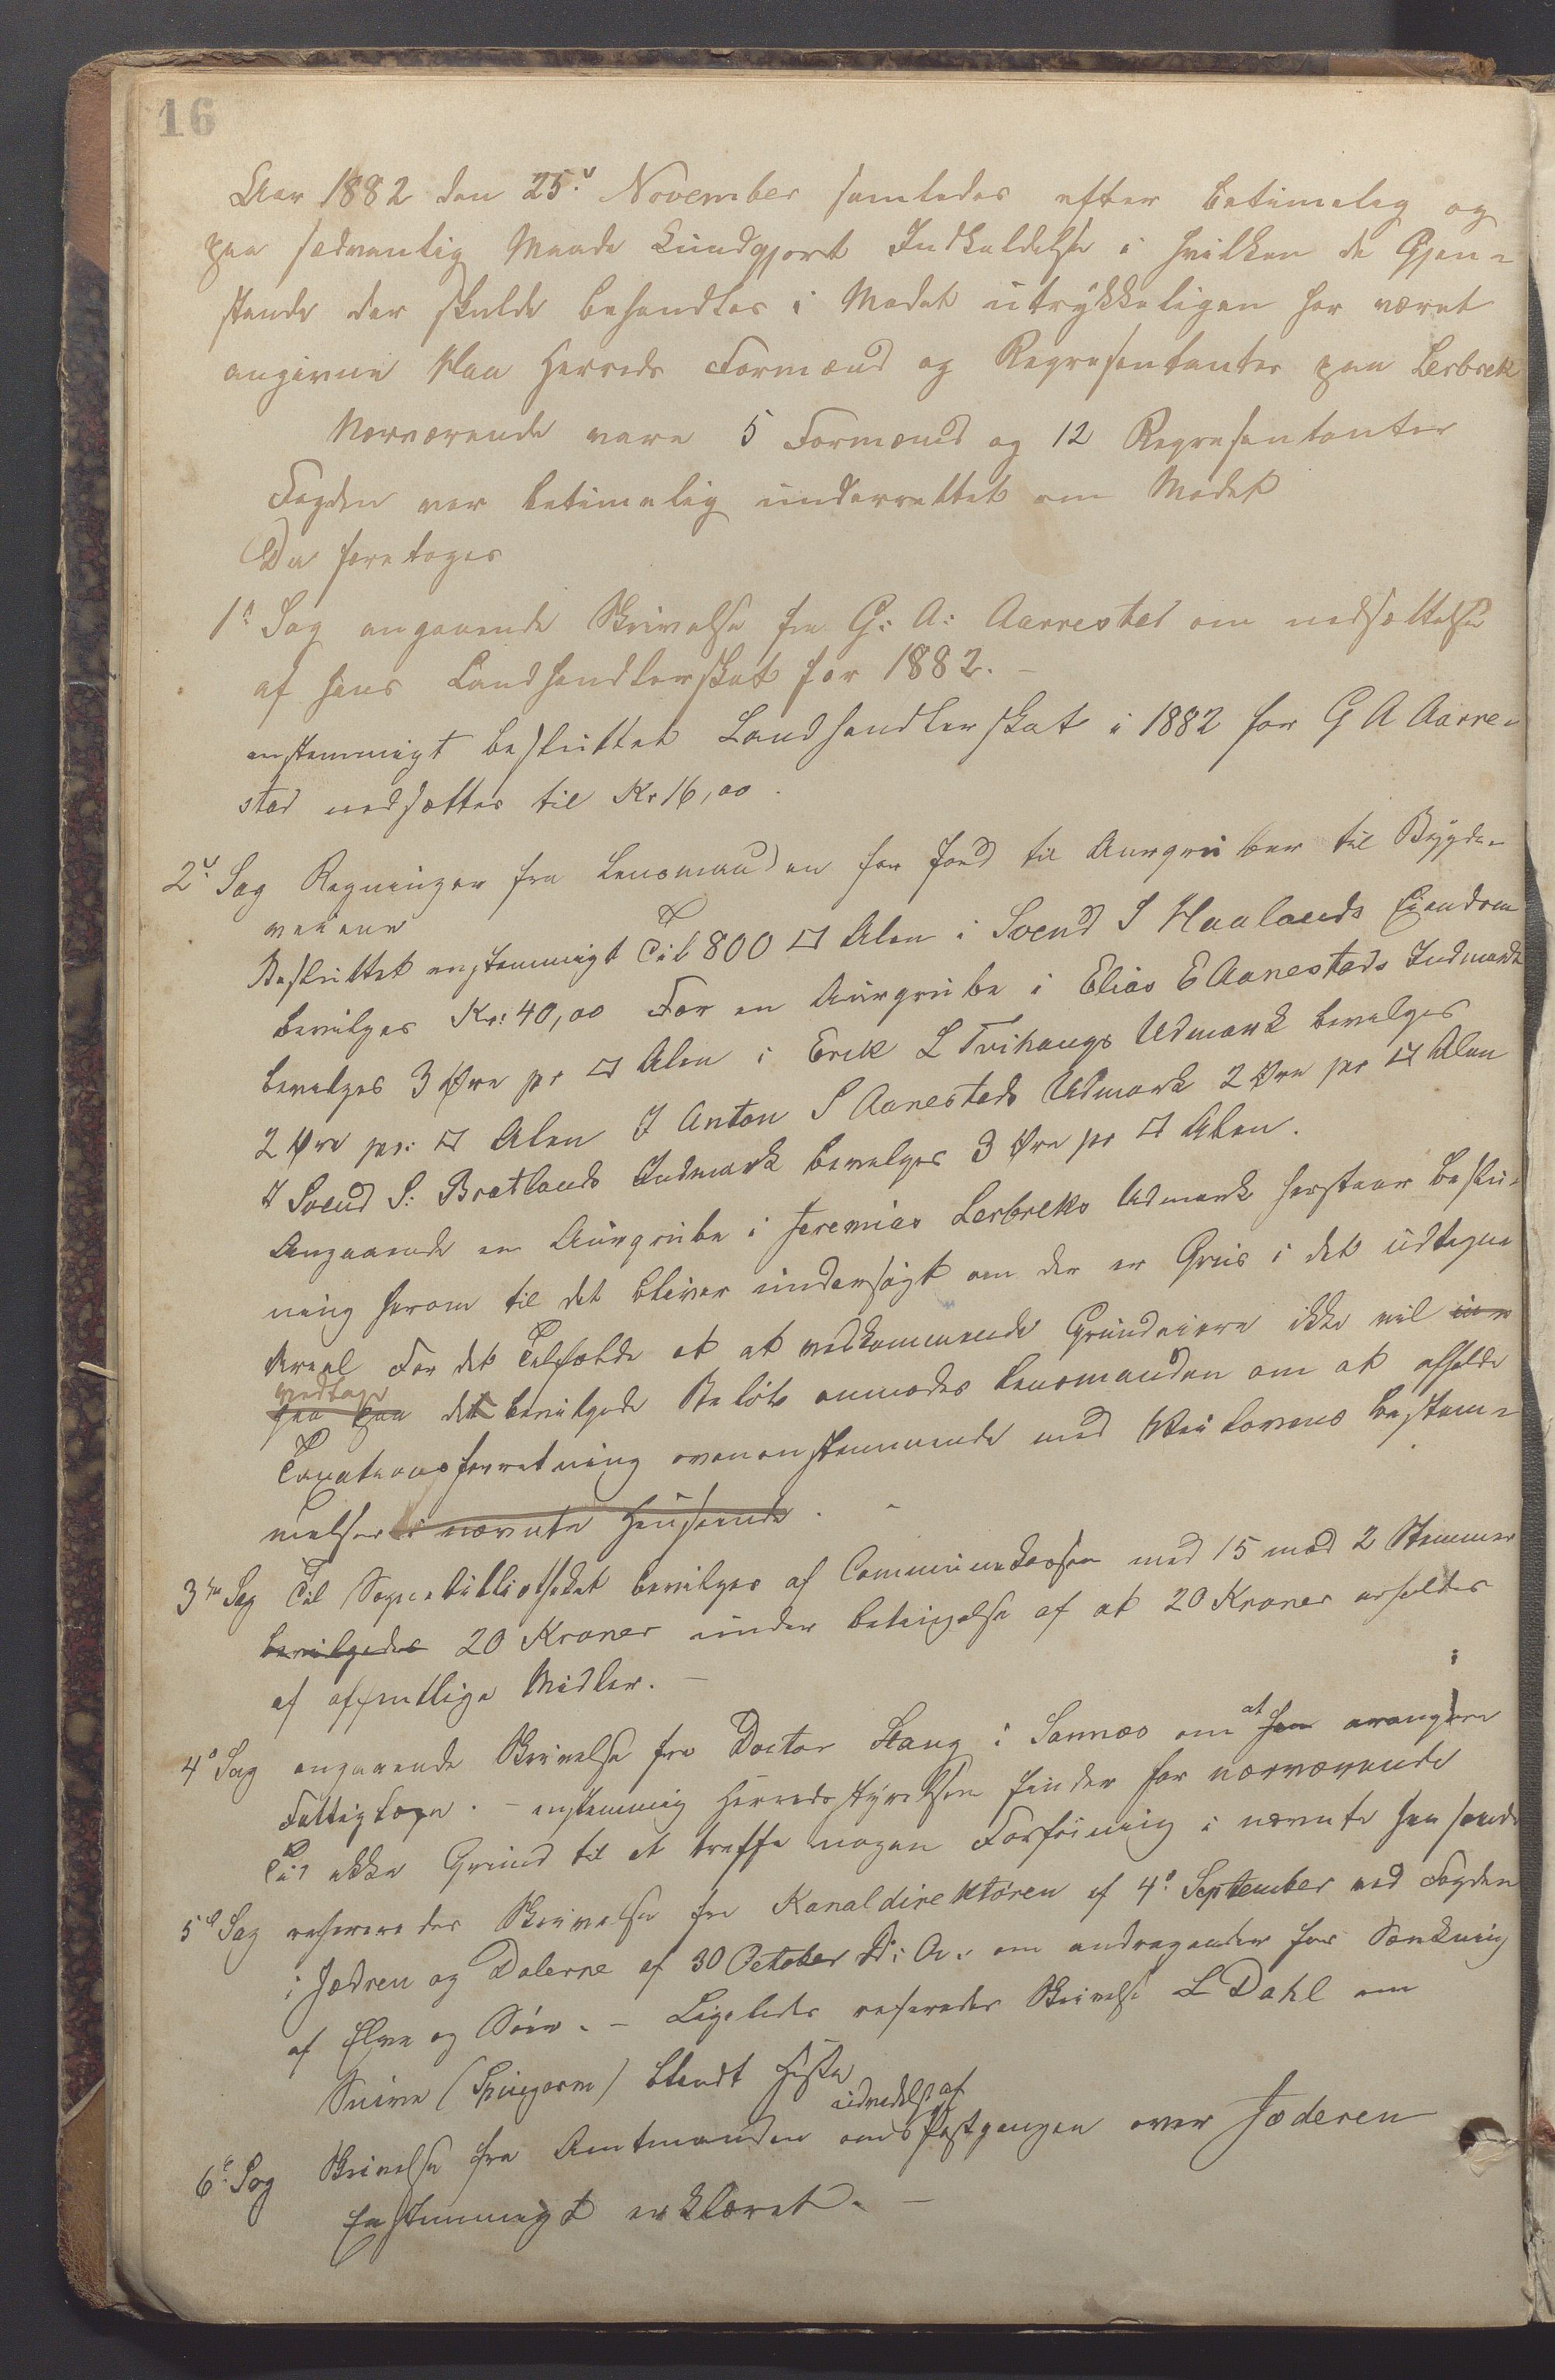 16
Aar 1882 den 25: November samledes efter betimelig og
paa sedvanlig Maade kundgjort Indkaldelse i hvilken de Gjen-
stande der skulde behandles i Mødet utrykkeligen har været
angivne Haa Herreds Formænd og Representanter paa Lerbrek
Nærværende vare 5 Formænd og 12 Representanter
Fogden var betimelig underrettet om Mødet
Da foretoges
1s Sag angaaende Skrivelse fra G: A: Aarrestad om nedsættelse
af hans Landhandlerskat for 1882. -
enstemmigt besluttet Landhandlerskat i 1882 for G A Aarre-
stad nedsættes til Kr 16,00.
2: Sag Regninger fra Lensmanden for Jord til Aurgruber til Bygde-
veiene
Besluttet enstemmigt Til 800 □ Alen i Svend S Haalands Eiendom
bevilges Kr: 40,00 For en Aurgrube i Elias E Aanestads Indmark
bevelges 3 Øre pr □ Alen i Erik L Tvihaugs Udmark bevelges
2 Øre pr: □ Alen I Anton S Aanestads Udmark 2 Øre pr □ Alen
I Svend S: Bratlands Indmark bevelges 3 Øre pr □ Alen.
Angaaende en Aurgrube i Jeremias Lerbreks Udmark henstaar beslu-
ning herom til det bliver undersøgt om der er Grus i det udtagne
Areal For det Telfælde at at vedkommende Grundeiere ikke vil
vedtage
det bevilgede Beløb anmodes Lensmanden om at afholde
Taxationsforretning overenstemmende med Veilovens bestem-
melser i nævnte Henseende.
3die Sag Til Sognebibliotheket bevilges af Communekassen med 15 mod 2 Stemmer
bevilgedes 20 Kroner under betingelse af at 20 Kroner erholdes
af offentlige Midler. -
4: Sag angaaende Skrivelse fra Doctor Stang i Sannæs om at han arangere
Fattiglæge. - enstemmig Herredsstyrelsen finder for nærværende
Tid ikke Grund til at treffe nogen Forføining i nævnte Henseende
5d Sag refereredes Skrivelse fra Kanaldirektøren af 4: September ved Fogden
i Jædren og Dalerne af 30 October D: A: om andragender for Sænkning
af Elve og Søer. - Ligeledes refereredes Skrivelse L Dahl om
Snive (Springorm) blandt Heste
udvedelse af
6: Sag Skrivelse fra Amtmanden om Postgangen over Jæderen
Enstemmigt erklæret. -